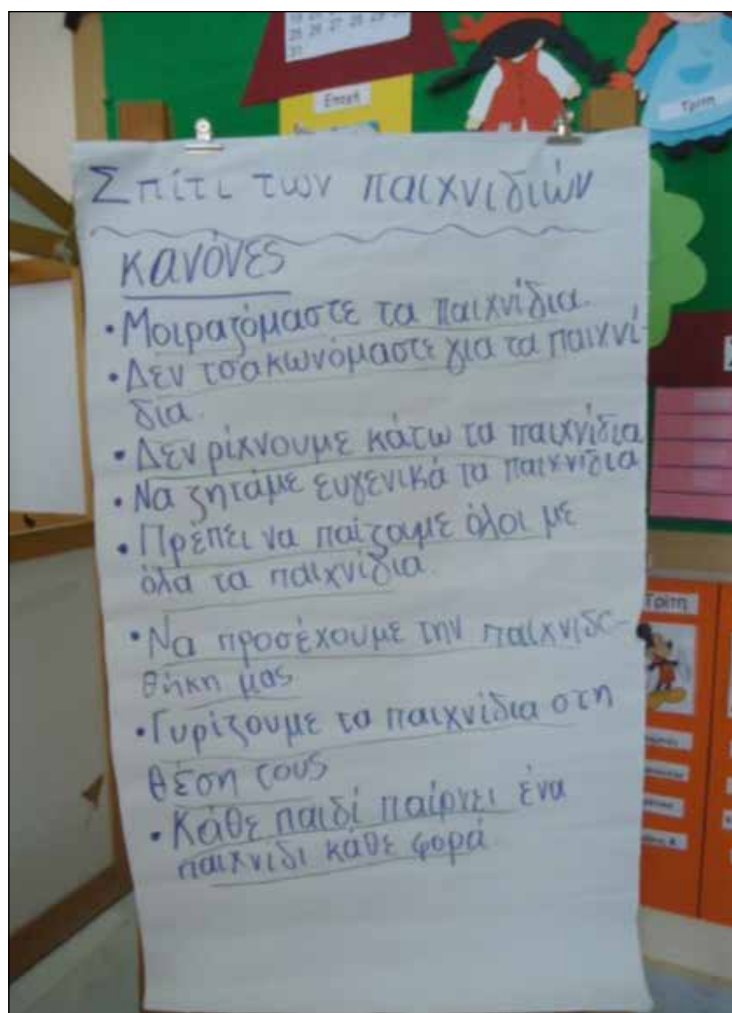 19 20
25 26 27 28 29 30
31
Εποχή
Τρίτη
Σπίτι των παιχνιδιών
κανόνες
• Μοιραζόμαστε τα παιχνίδια.
• Δεν τσακωνόμαστε για τα παιχνί-
δια.
• Δεν ρίχνουμε κάτω τα παιχνίδια
• Να ζητάμε ευγενικά τα παιχνίδια
• Πρέπει να παίζουμε όλοι με
όλα τα παιχνίδια.
• Να προσέχουμε την παιχνιδο-
θήκη μας
• Γυρίζουμε τα παιχνίδια στη
θέση τους
• Κάθε παιδί παίρνει ένα
παιχνίδι κάθε φορά.
Τρίτη